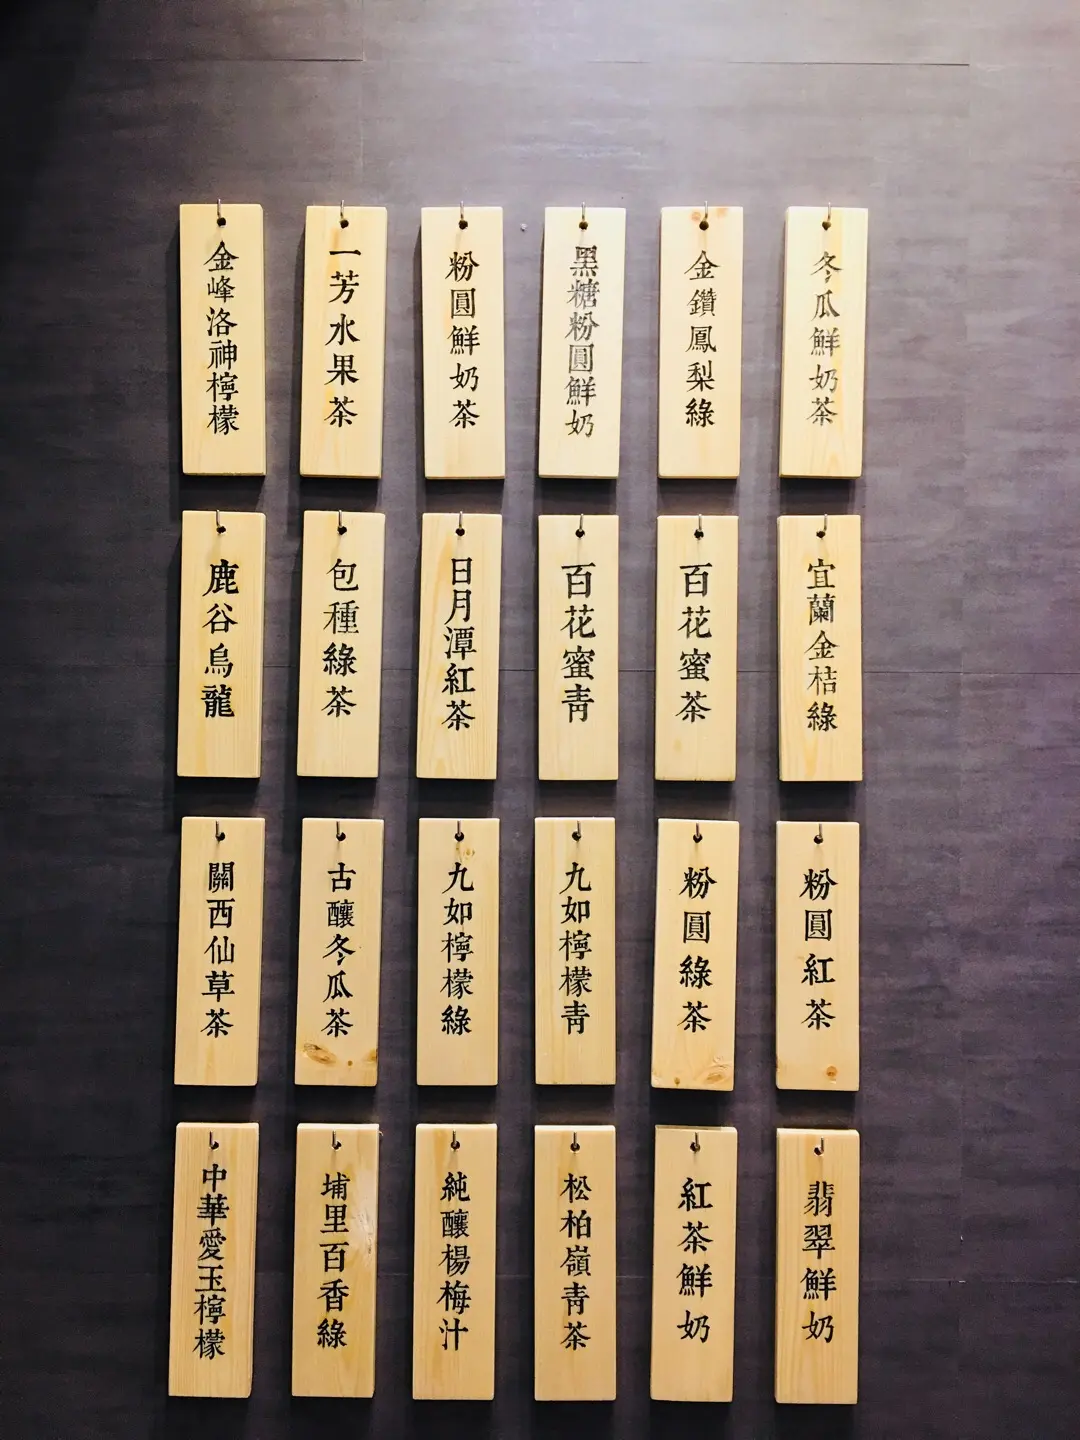 金峰洛神檸檬
一芳水果茶
粉圓鮮奶茶
黑糖粉圓鮮奶
金鑽鳳梨綠
冬瓜鮮奶茶
鹿谷烏龍
包種綠茶
日月潭紅茶
百花蜜青
百花蜜茶
宜蘭金桔綠
關西仙草茶
古釀冬瓜茶
九如檸檬綠
九如檸檬青
粉圓綠茶
粉圓紅茶
中華愛玉檸檬
埔里百香綠
純釀楊梅汁
松柏嶺青茶
紅茶鮮奶
翡翠鮮奶